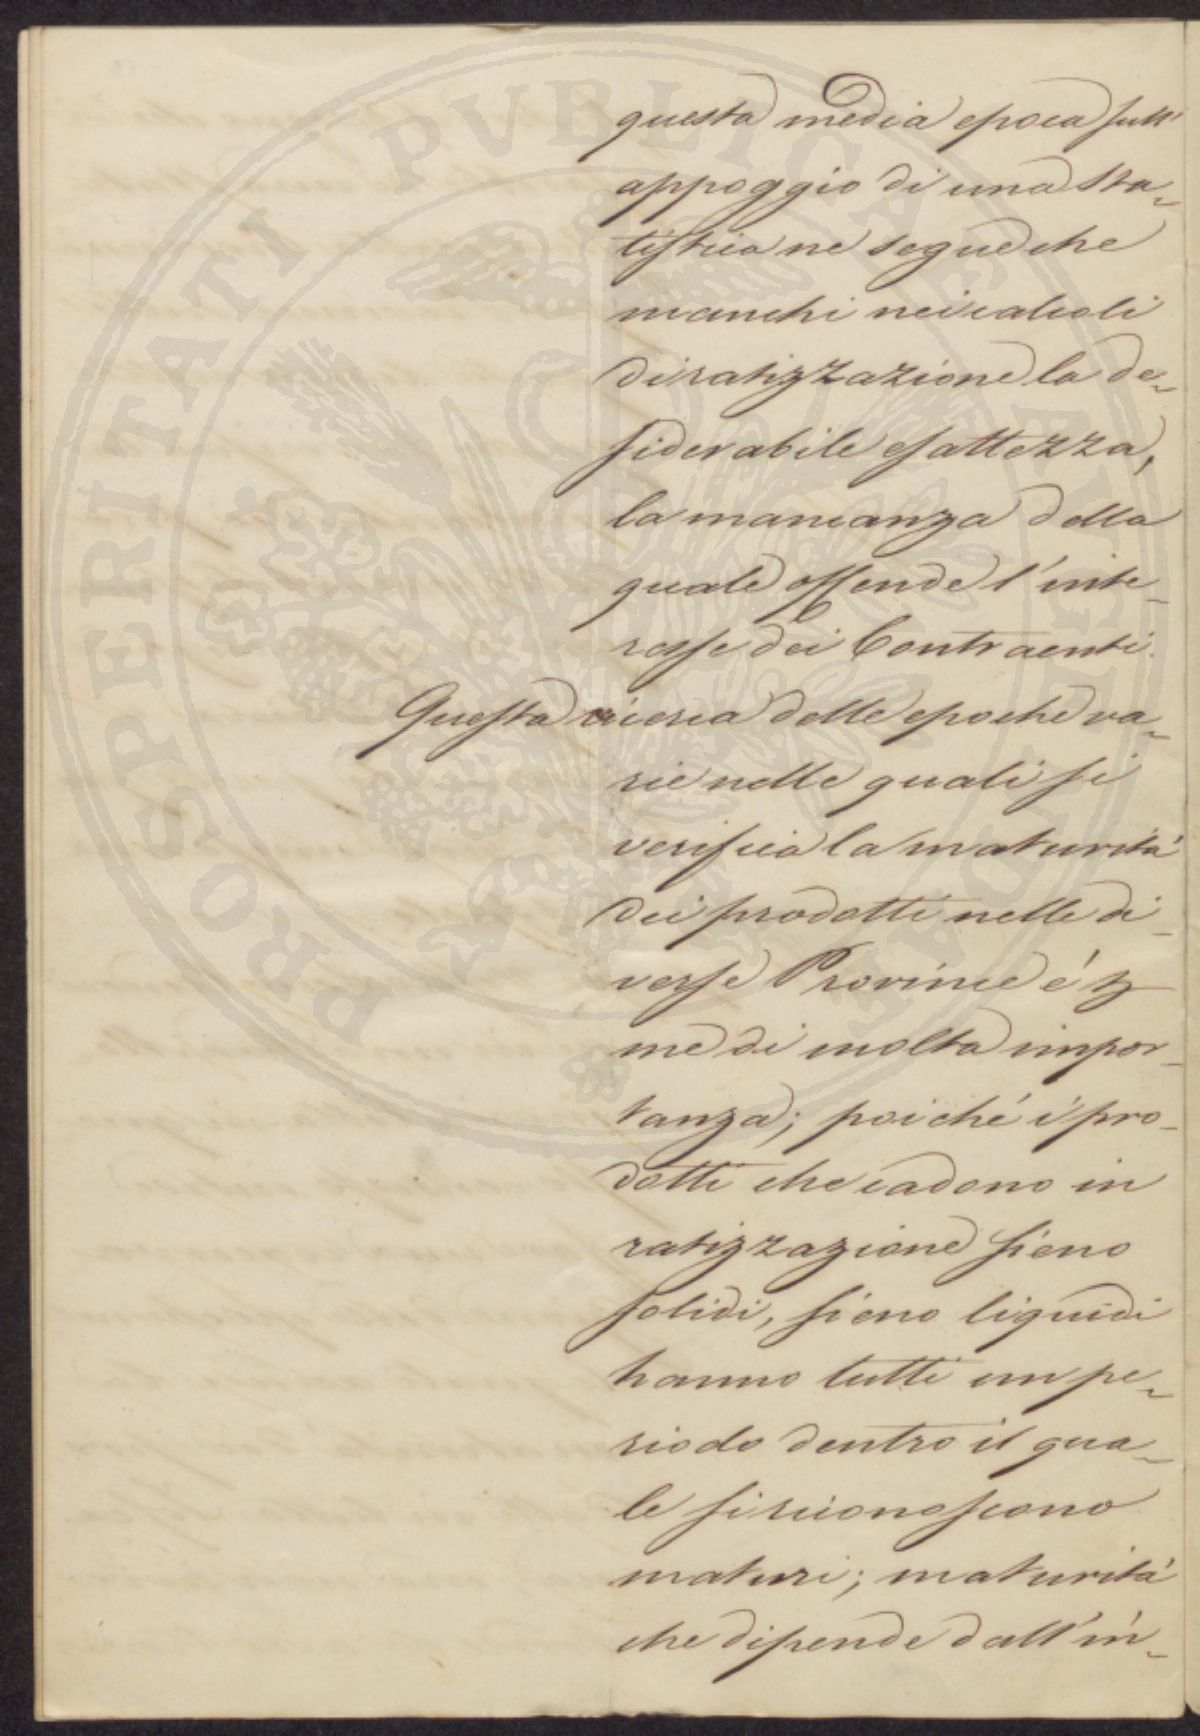 questa media epoca sull'
appoggio di una sta-
tistica ne segue che
manchi nei calcoli
di ratizzazione la de-
siderabile esattezza,
la mancanza della
quale offende l'inte-
resse dei Contraenti.
Questa ricerca delle epoche va-
rie nelle quali si
verifica la maturità
dei prodotti nelle di-
verse Provincie é
me di molta impor-
tanza; poiché i pro-
dotti che cadono in
ratizzazione sieno
solidi, sieno liquidi
hanno tutti un pe-
riodo dentro il qua-
le si riconoscono
maturi; maturità
che dipende dall'in-
PROSPERITATI PVBLICAE AVGENDAE